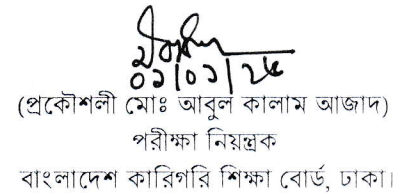 ০১|০১|২৫
(প্রকৌশলী মোঃ আবুল কালাম আজাদ)
পরীক্ষা নিয়ন্ত্রক
বাংলাদেশ কারিগরি শিক্ষা বোর্ড, ঢাকা।